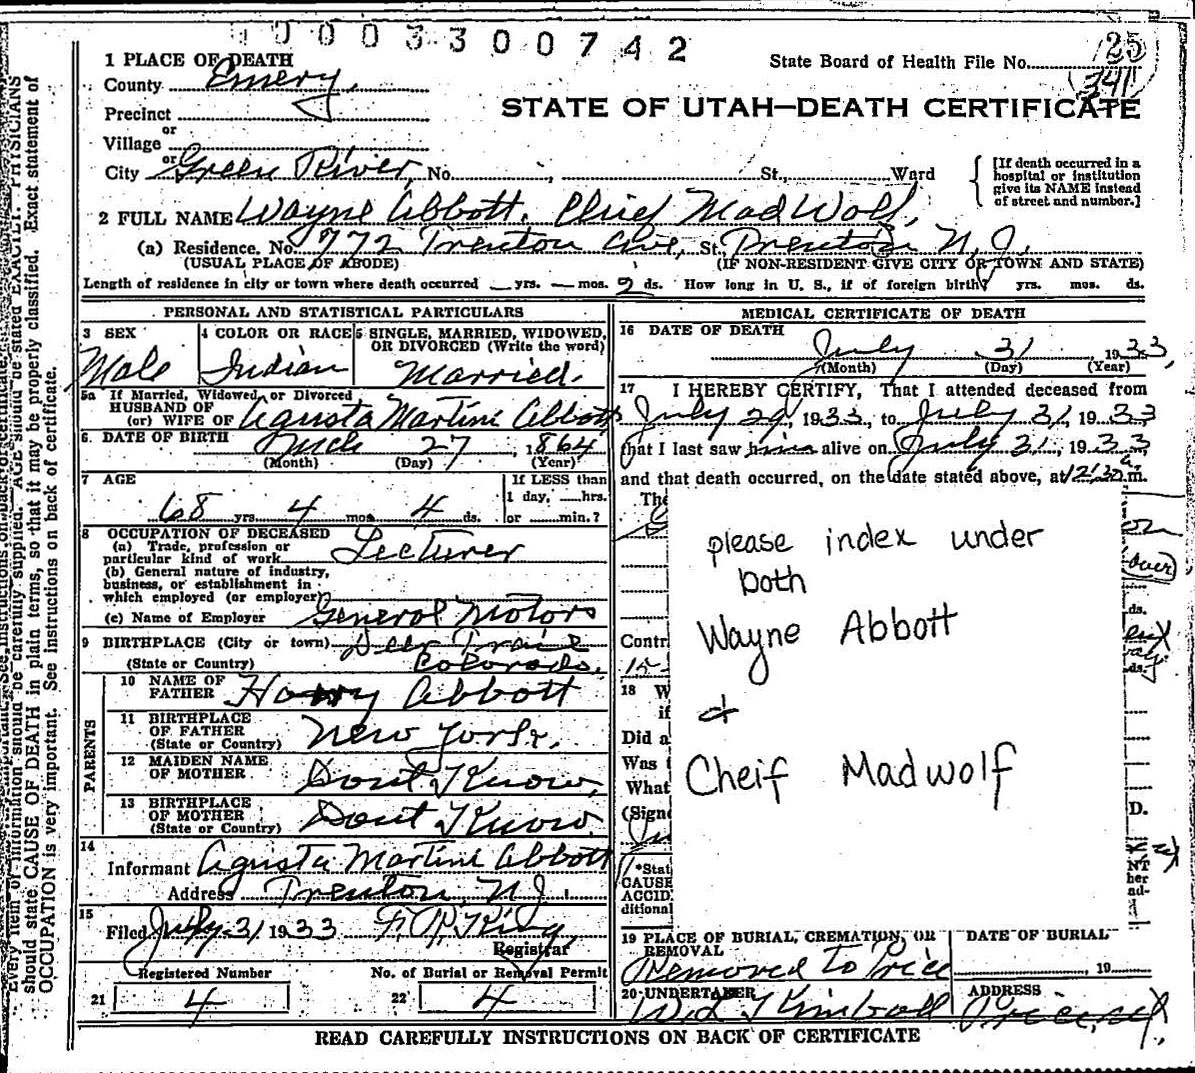 0003300742
1 PLACE OF DEATH
State Board of Health File No. 25
County Emery,
341
Precinct
STATE OF UTAH—DEATH CERTIFICATE
or
Village
or
City Green River, No. , St., Ward
[If death occurred in a hospital or institution give its NAME instead of street and number.]
2 FULL NAME Wayne Abbott. Chief Mad Wolf,
(a) Residence. No. 772 Trenton Ave, St., Trenton N.J.
(USUAL PLACE OF ABODE) (IF NON-RESIDENT GIVE CITY OR TOWN AND STATE)
Length of residence in city or town where death occurred — yrs. — mos. 2 ds. How long in U. S., if of foreign birth? yrs. mos. ds.
PERSONAL AND STATISTICAL PARTICULARS
3 SEX 4 COLOR OR RACE 5 SINGLE, MARRIED, WIDOWED, OR DIVORCED (Write the word)
Male Indian Married.
5a If Married, Widowed, or Divorced
HUSBAND OF
(or) WIFE OF Agusta Martini Abbott
6. DATE OF BIRTH 27, 1864
(Month) (Day) (Year)
7 AGE
If LESS than
1 day, ......hrs.
68 yrs. 4 mos. 4 ds. or ......min.?
8 OCCUPATION OF DECEASED
(a) Trade, profession or
particular kind of work Lecturer
(b) General nature of industry,
business, or establishment in
which employed (or employer)
(c) Name of Employer General Motors
9 BIRTHPLACE (City or town) Deer Trail
(State or Country) Colorado.
PARENTS
10 NAME OF
FATHER Harry Abbott
11 BIRTHPLACE
OF FATHER
(State or Country) New York.
12 MAIDEN NAME
OF MOTHER Dont Know,
13 BIRTHPLACE
OF MOTHER
(State or Country) Dont Know
14
Informant Agusta Martini Abbott
Address Trenton N J.
15
Filed July 31 1933
Registrar
Registered Number No. of Burial or Removal Permit
21 4 22 4
MEDICAL CERTIFICATE OF DEATH
16 DATE OF DEATH
July 31, 1933,
(Month) (Day) (Year)
17 I HEREBY CERTIFY, That I attended deceased from
July 29, 1933, to July 31, 1933
that I last saw him alive on July 31, 1933
and that death occurred, on the date stated above, at 12:30 a m.
The
please index under
both
Wayne Abbott
+
Cheif Madwolf
(over)
ds.
Contr
ds.
18 W
if
Did a
Was
What
(Signe
D.
*Stat
NT
CAUSE
her
ACCID
ad-
ditional
19 PLACE OF BURIAL, CREMATION, OR REMOVAL DATE OF BURIAL
Removed to Price , 19
20 UNDERTAKER ADDRESS
Kimball Price, ut.
READ CAREFULLY INSTRUCTIONS ON BACK OF CERTIFICATE
should state CAUSE OF DEATH in plain terms, so that it may be properly classified. Exact statement of
OCCUPATION is very important. See instructions on back of certificate.